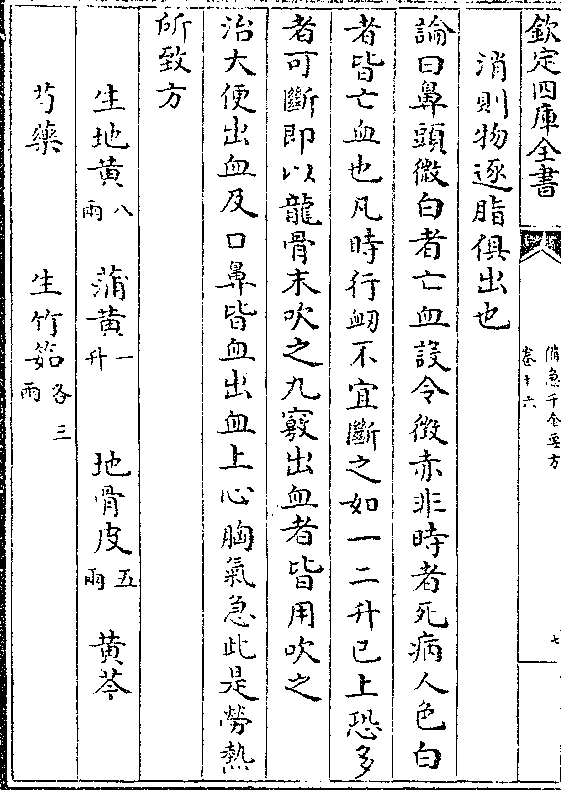 欽定四庫全書
備急千金要方
卷十六
七
消則物逐脂俱出也
論曰鼻頭微白者亡血設令微赤非時者死病人色白
者皆亡血也凡時行衂不宜斷之如一二升已上恐多
者可斷即以龍骨末吹之九竅出血者皆用吹之
治大便出血及口鼻皆血出血上心胸氣急此是勞熱
所致方
生地黄八兩 蒲黄一升 地骨皮五兩 黄芩
芍藥 生竹筎各三兩